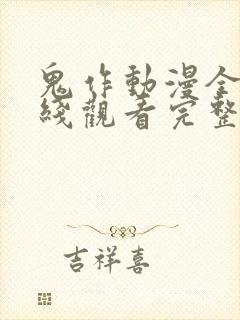 鬼作動漫全
綫觀看完整
吉祥喜